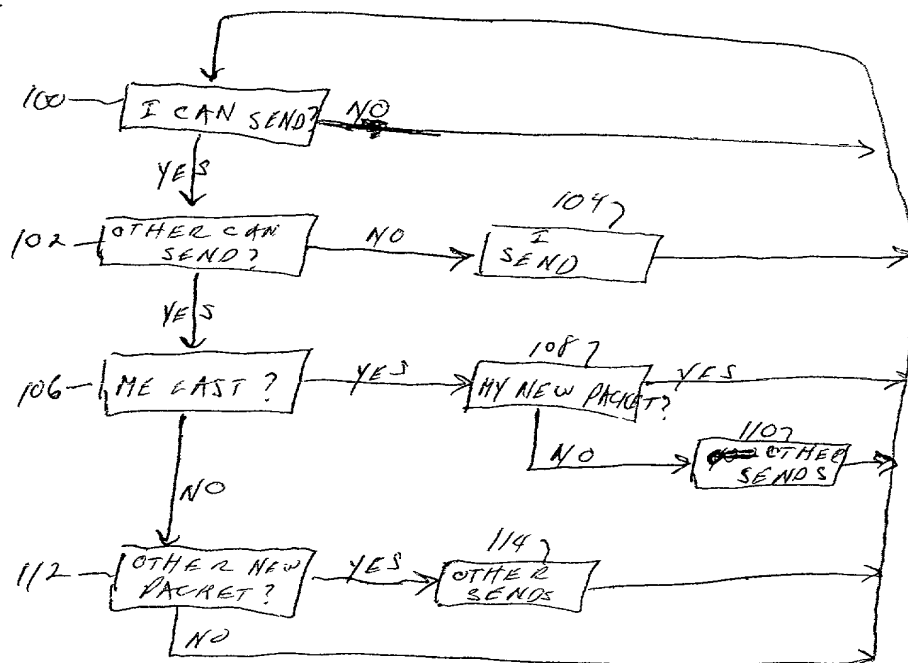 100
I CAN SEND?
NO
YES
104
102
OTHER CAN
SEND?
NO
I
SEND
YES
108
106
ME LAST?
YES
MY NEW PACKET?
YES
110
NO
OTHER
SENDS
NO
114
112
OTHER NEW
PACKET?
YES
OTHER
SENDS
NO